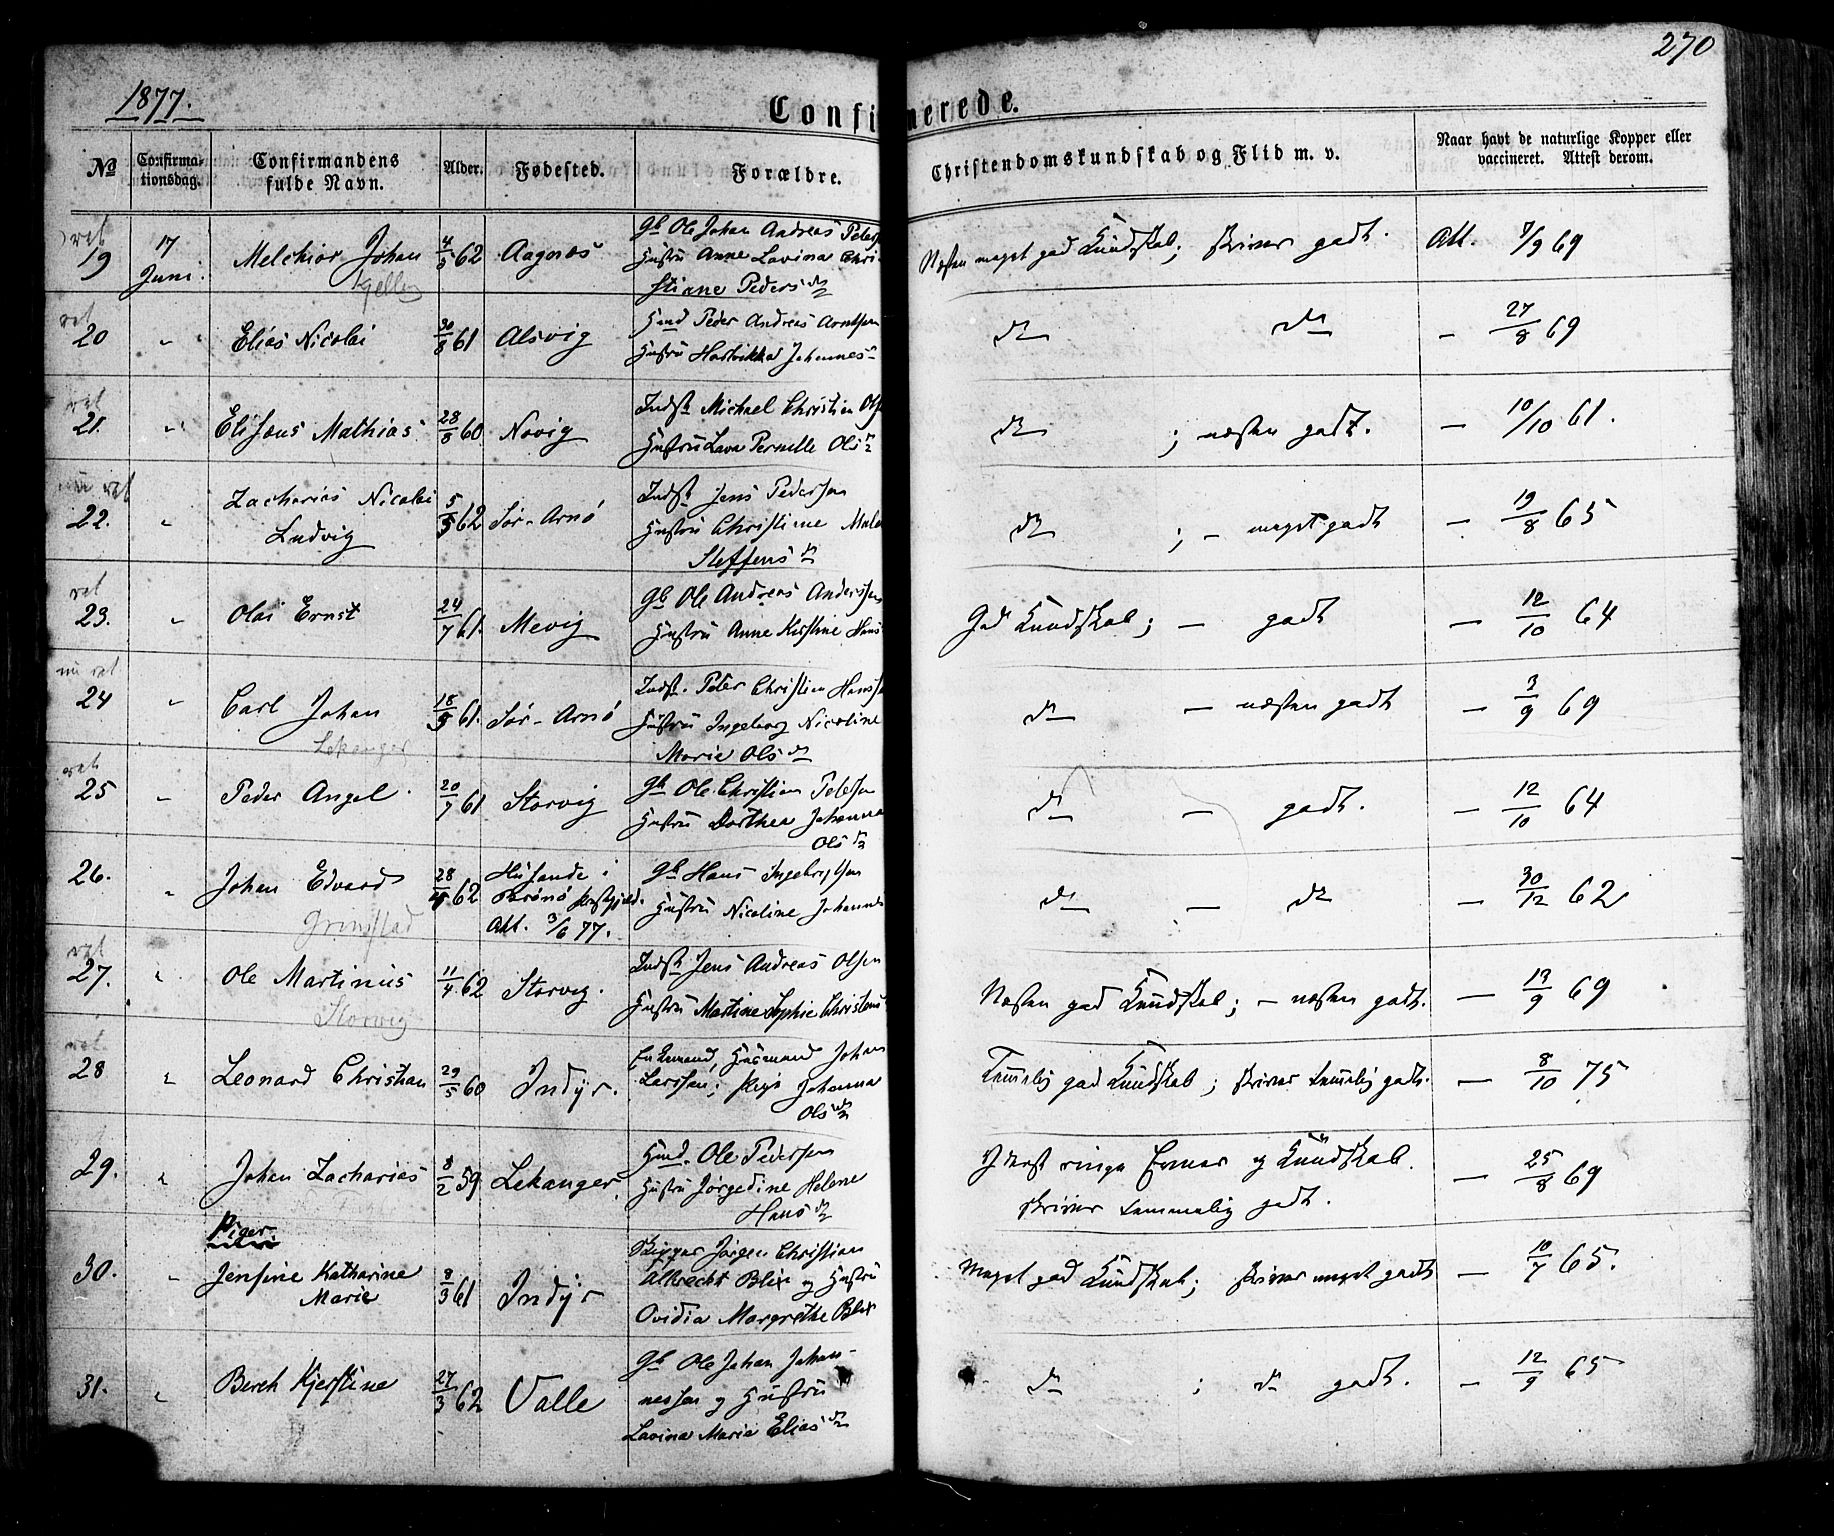 270
1877.
Confirmerede.
No
Confirma-
tionsdag.
Confirmandens
fulde Navn.
Alder.
Fødested.
Forældre.
Christendomskundskab og Flid m. v.
Naar havt de naturlige Kopper eller
vaccineret. Attest derom.
ret
19 17 Juni. Melchior Johan 4/3 62 Aagnæs Gb Ole Johan Andreas Peters
Hustru Anne Lovina Chri-
stiane Pedersd
Næsten meget god Kundskab; skriver godt. Att. 7/9 69
ret
20 " Elias Nicolai 30/8 61 Alsvig Hmd Peder Andreas Arntsen
Hustru Hartvikka Johannes-
do do - 27/8 69
ret
21. " Elisæus Mathias 28/8 60 Novig Indst Michael Christian Ols
Hustru Lava Pernille Olsd
do ; næsten godt. - 10/10 61.
nu ret
22. " Zacharias Nicolai
Ludvig
5/5 62 Sør-Arnø Indst Jens Pedersen
Hustru Christine
Steffensd
do ; - meget godt - 19/8 65
ret
23. " Olai Ernst 24/7 61. Mevig Gb Ole Andreas Anderssen
Hustru Anne Kirstine Hans
God Kundskab; - godt - 12/10 64
nu ret
24 " Carl Johan 18/5 61. Sør-Arnø Indst. Peter Christian Hanss
Lekanger
Hustru Ingeborg Nicoline
Marie Olsd
do - næsten godt - 3/9 69
ret
25 " Peder Angel. 20/7 61 Storvig Gb Ole Christian Peders
Hustru Dorthea Johanna
Olsd
do - godt. - 12/10 64
26. " Johan Edvard 28/4 62 Husande i
Brønø Præstgjeld.
Att. 3/6 77.
Grimstad
Gb Hans Ingebrigtsen
Hustru Nicoline Johannes
do - do - 30/12 62
ret
27. " Ole Martinus 11/4 62 Storvig. Indst Jens Andreas Olsen
Storvig
Hustru Martine Sophie Christens
Næsten god Kundskab; - næsten godt. - 13/9 69
ret.
28 " Leonard Christian 29/5 60 Indyr. Enkemand, Husmand Johan
Larssen; Pige Johanna
Olsd
Temmelig god Kundskab; skriver temmelig godt. - 8/10 75
29. " Johan Zacharias 8/2 59 Lekanger. Hmd. Ole Pedersen
Hustru Jørgedine Helene
Hansd
Yderst ringe Evner og Kundskab.
skriver temmelig godt. - 25/8 69
Piger
30. " Jensine Katharine
Marie
8/3 61 Indyr Skipper Jørgen Christian
Albrecht Blix og Hustru
Ovidia Margrethe Blix
Meget god Kundskab; skriver meget godt - 10/7 65.
31. " Berch Kjerstine 27/3 62 Valle Gb Ole Johan Johan-
nessen og Hustru
Lavina Marie Eliasd
do ; do godt. - 12/9 65